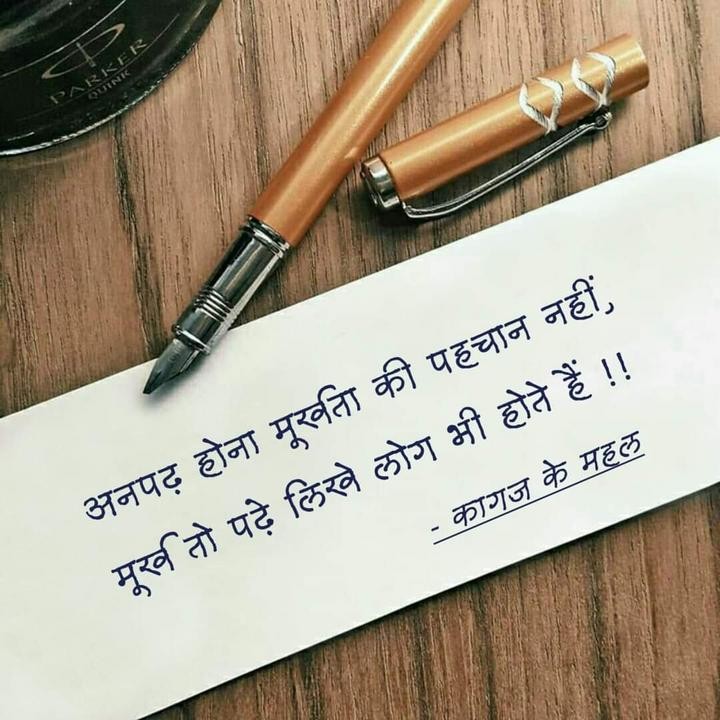 PARKER
QUINK
अनपढ़ होना मूर्खता की पहचान नहीं,
मूर्ख तो पढ़े लिखे लोग भी होते हैं !!
- कागज के महल